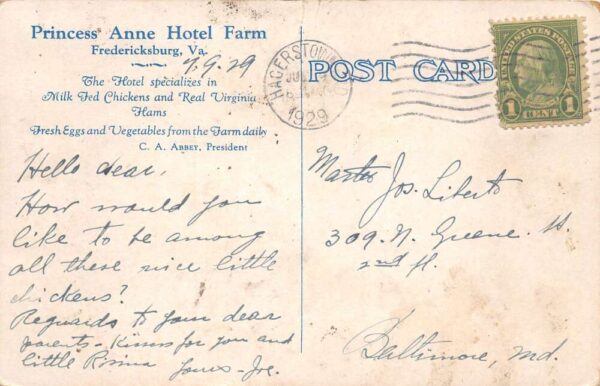 Princess Anne Hotel Farm
Fredericksburg, Va.
7.9.29
The Hotel specializes in
Milk Fed Chickens and Real Virginia
Hams
Fresh Eggs and Vegetables from the Farm daily
C. A. ABBEY, President
Hello dear,
How would you
like to be among
all these nice little
chickens?
Reguards to your dear
parents - Kisses for you and
little Yours - Joe.
HAGERSTOWN
1929
POST CARD
UNITED STATES POSTAGE
1 CENT 1
Master Jos. Liberto
309. N. Greene St.
2nd fl.
Baltimore, Md.